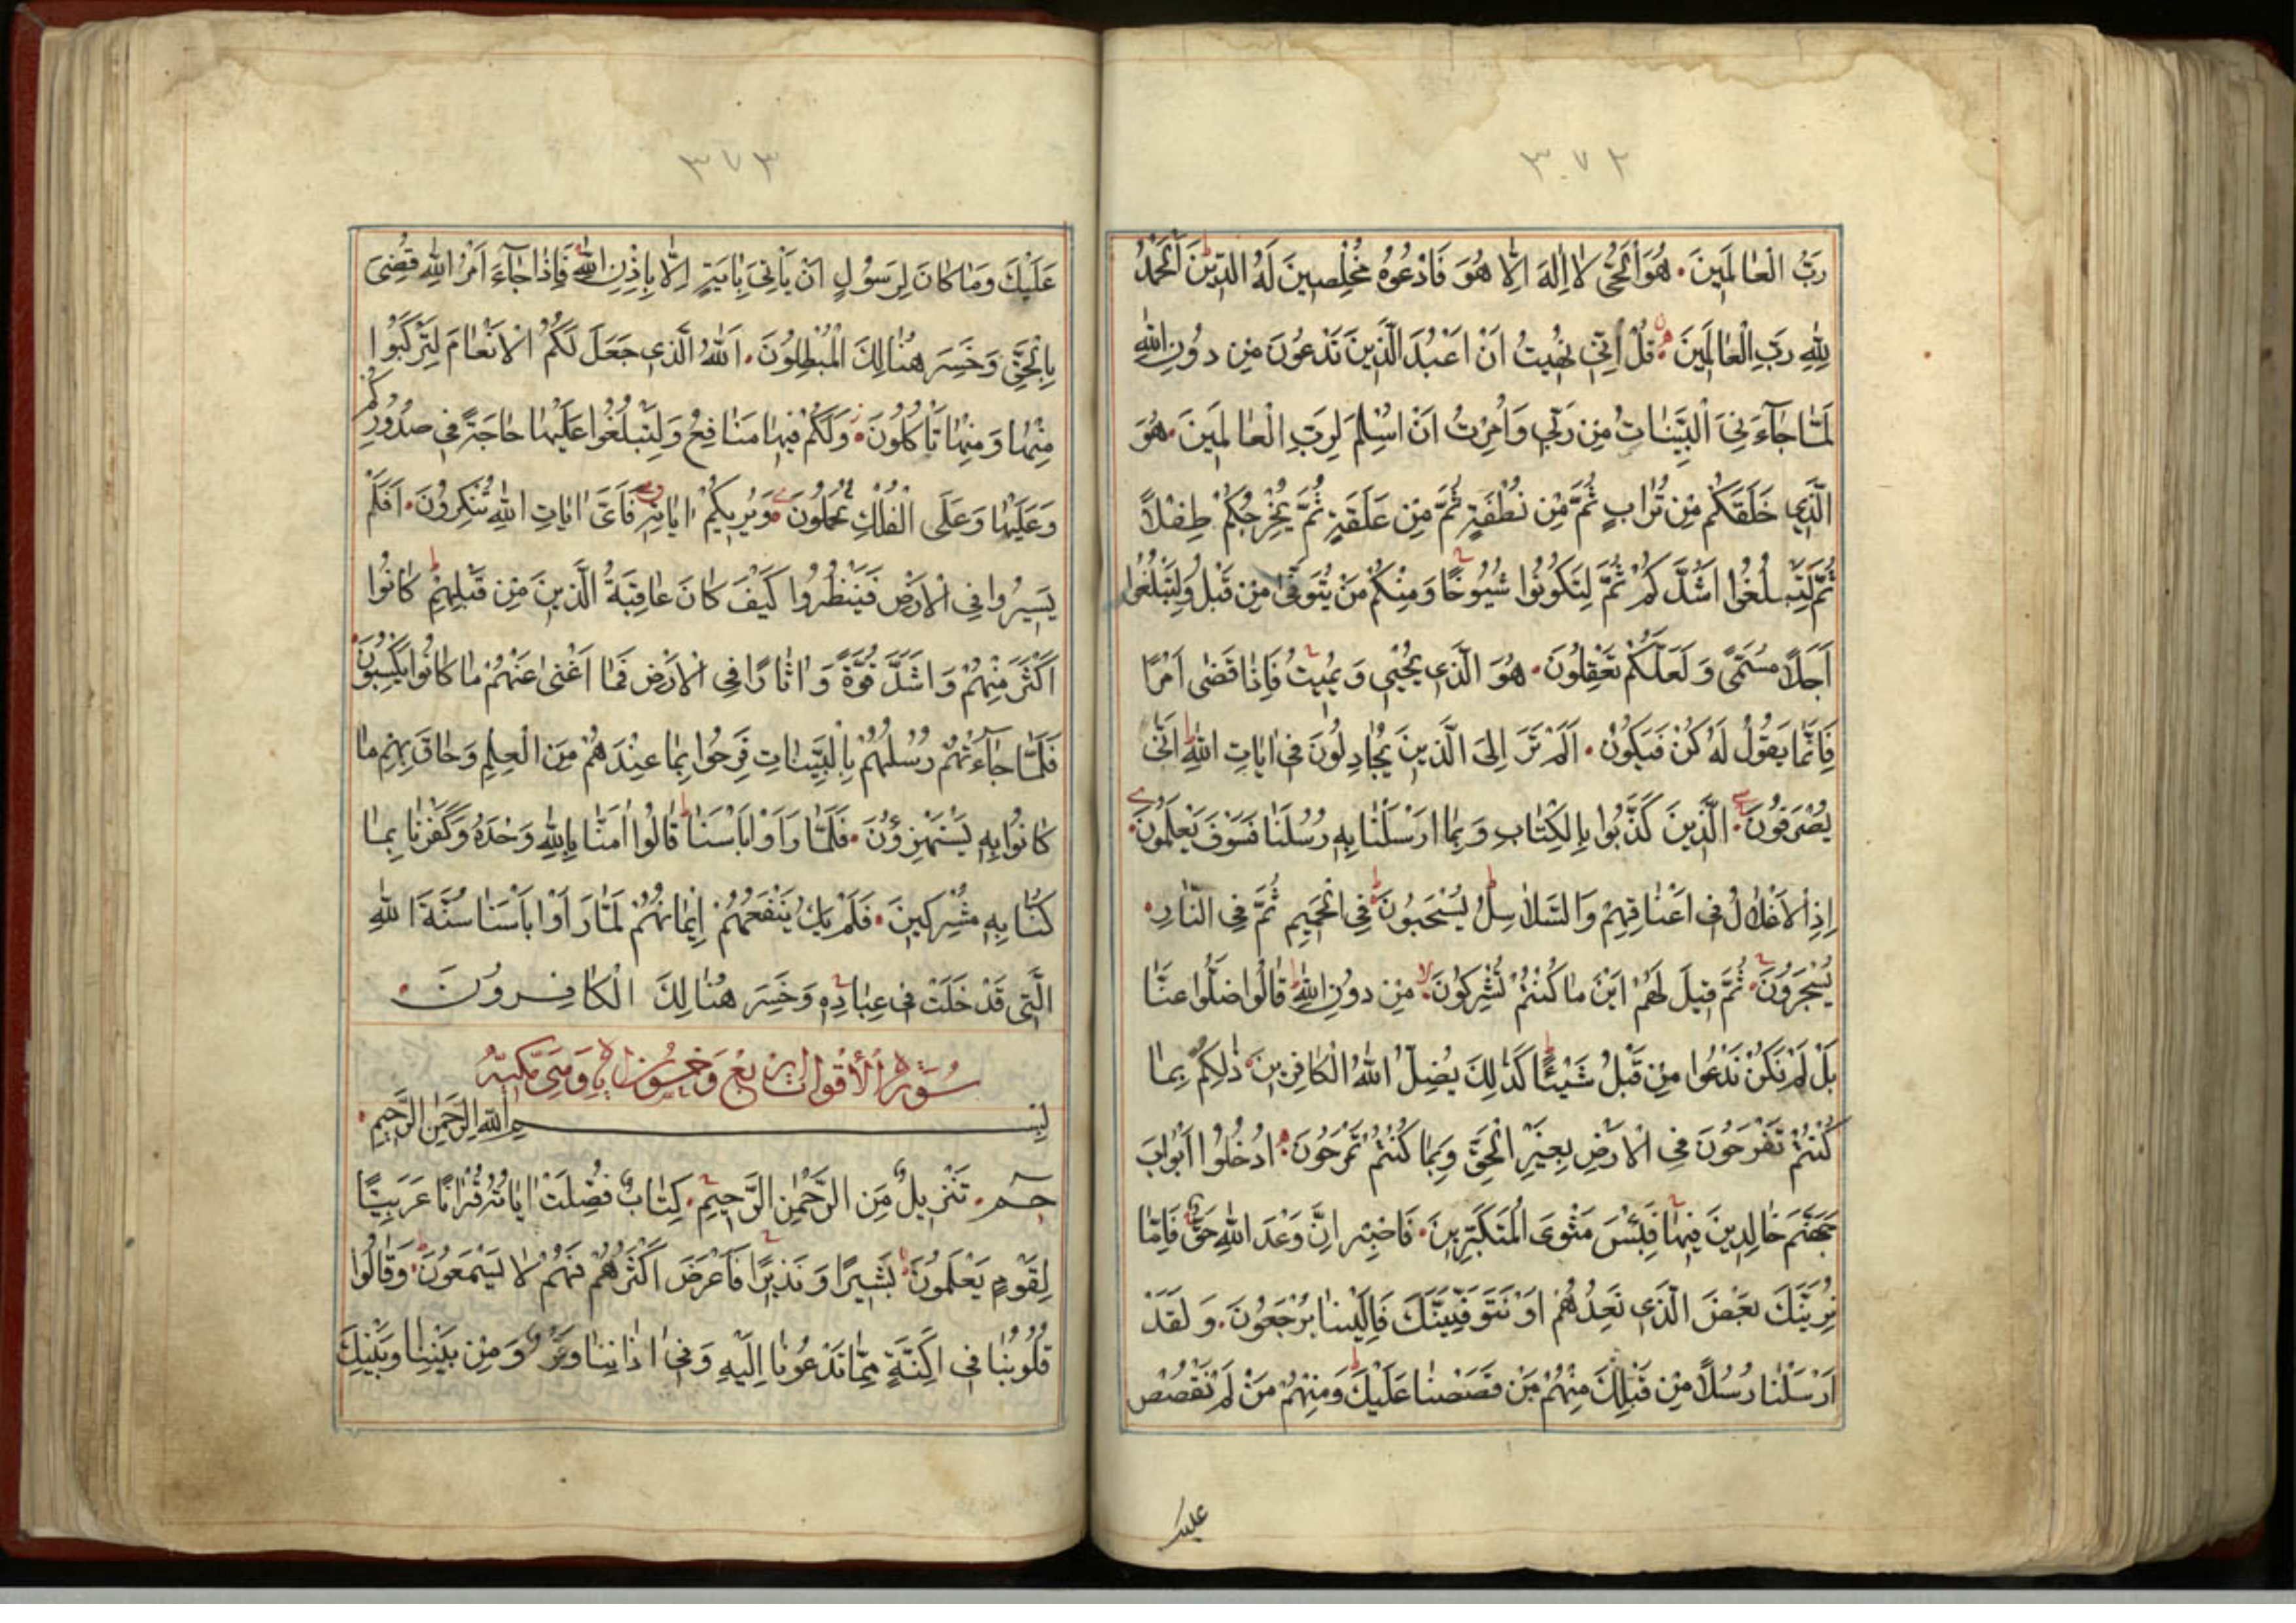 ٣٧٢
رَبُّ الْعَالَمِينَ هُوَ الْحَيُّ لَا اِلٰهَ اِلَّا هُوَ فَادْعُوهُ مُخْلِصِينَ لَهُ الدِّينَ اَلْحَمْدُ
لِلّٰهِ رَبِّ الْعَالَمِينَ قُلْ اِنِّي نُهِيتُ اَنْ اَعْبُدَ الَّذِينَ تَدْعُونَ مِنْ دُونِ اللّٰهِ
لَمَّا جَاۤءَنِيَ الْبَيِّنَاتُ مِنْ رَبِّي وَاُمِرْتُ اَنْ اُسْلِمَ لِرَبِّ الْعَالَمِينَ هُوَ
الَّذِي خَلَقَكُمْ مِنْ تُرَابٍ ثُمَّ مِنْ نُطْفَةٍ ثُمَّ مِنْ عَلَقَةٍ ثُمَّ يُخْرِجُكُمْ طِفْلًا
ثُمَّ لِتَبْلُغُوا اَشُدَّكُمْ ثُمَّ لِتَكُونُوا شُيُوخًا وَمِنْكُمْ مَنْ يُتَوَفّٰى مِنْ قَبْلُ وَلِتَبْلُغُوا
اَجَلًا مُسَمًّى وَلَعَلَّكُمْ تَعْقِلُونَ هُوَ الَّذِي يُحْيِي وَيُمِيتُ فَاِذَا قَضٰى اَمْرًا
فَاِنَّمَا يَقُولُ لَهُ كُنْ فَيَكُونُ اَلَمْ تَرَ اِلَى الَّذِينَ يُجَادِلُونَ فِي اٰيَاتِ اللّٰهِ اَنّٰى
يُصْرَفُونَ الَّذِينَ كَذَّبُوا بِالْكِتَابِ وَبِمَا اَرْسَلْنَا بِهِ رُسُلَنَا فَسَوْفَ يَعْلَمُونَ
اِذِ الْاَغْلَالُ فِي اَعْنَاقِهِمْ وَالسَّلَاسِلُ يُسْحَبُونَ فِي الْحَمِيمِ ثُمَّ فِي النَّارِ
يُسْجَرُونَ ثُمَّ قِيلَ لَهُمْ اَيْنَ مَا كُنْتُمْ تُشْرِكُونَ مِنْ دُونِ اللّٰهِ قَالُوا ضَلُّوا عَنَّا
بَلْ لَمْ نَكُنْ نَدْعُوا مِنْ قَبْلُ شَيْئًا كَذٰلِكَ يُضِلُّ اللّٰهُ الْكَافِرِينَ ذٰلِكُمْ بِمَا
كُنْتُمْ تَفْرَحُونَ فِي الْاَرْضِ بِغَيْرِ الْحَقِّ وَبِمَا كُنْتُمْ تَمْرَحُونَ اُدْخُلُوا اَبْوَابَ
جَهَنَّمَ خَالِدِينَ فِيهَا فَبِئْسَ مَثْوَى الْمُتَكَبِّرِينَ فَاصْبِرْ اِنَّ وَعْدَ اللّٰهِ حَقٌّ فَاِمَّا
نُرِيَنَّكَ بَعْضَ الَّذِي نَعِدُهُمْ اَوْ نَتَوَفَّيَنَّكَ فَاِلَيْنَا يُرْجَعُونَ وَلَقَدْ
اَرْسَلْنَا رُسُلًا مِنْ قَبْلِكَ مِنْهُمْ مَنْ قَصَصْنَا عَلَيْكَ وَمِنْهُمْ مَنْ لَمْ نَقْصُصْ
عليك
٣٧٣
عَلَيْكَ وَمَا كَانَ لِرَسُولٍ اَنْ يَأْتِيَ بِاٰيَةٍ اِلَّا بِاِذْنِ اللّٰهِ فَاِذَا جَاۤءَ اَمْرُ اللّٰهِ قُضِيَ
بِالْحَقِّ وَخَسِرَ هُنَالِكَ الْمُبْطِلُونَ اَللّٰهُ الَّذِي جَعَلَ لَكُمُ الْاَنْعَامَ لِتَرْكَبُوا
مِنْهَا وَمِنْهَا تَأْكُلُونَ وَلَكُمْ فِيهَا مَنَافِعُ وَلِتَبْلُغُوا عَلَيْهَا حَاجَةً فِي صُدُورِكُمْ
وَعَلَيْهَا وَعَلَى الْفُلْكِ تُحْمَلُونَ وَيُرِيكُمْ اٰيَاتِهِ فَاَيَّ اٰيَاتِ اللّٰهِ تُنْكِرُونَ اَفَلَمْ
يَسِيرُوا فِي الْاَرْضِ فَيَنْظُرُوا كَيْفَ كَانَ عَاقِبَةُ الَّذِينَ مِنْ قَبْلِهِمْ كَانُوا
اَكْثَرَ مِنْهُمْ وَاَشَدَّ قُوَّةً وَاٰثَارًا فِي الْاَرْضِ فَمَا اَغْنٰى عَنْهُمْ مَا كَانُوا يَكْسِبُونَ
فَلَمَّا جَاۤءَتْهُمْ رُسُلُهُمْ بِالْبَيِّنَاتِ فَرِحُوا بِمَا عِنْدَهُمْ مِنَ الْعِلْمِ وَحَاقَ بِهِمْ مَا
كَانُوا بِهِ يَسْتَهْزِؤُنَ فَلَمَّا رَاَوْا بَأْسَنَا قَالُوا اٰمَنَّا بِاللّٰهِ وَحْدَهُ وَكَفَرْنَا بِمَا
كُنَّا بِهِ مُشْرِكِينَ فَلَمْ يَكُ يَنْفَعُهُمْ اِيمَانُهُمْ لَمَّا رَاَوْا بَأْسَنَا سُنَّةَ اللّٰهِ
الَّتِي قَدْ خَلَتْ فِي عِبَادِهِ وَخَسِرَ هُنَالِكَ الْكَافِرُونَ
سُورَة وَخَمْسُونَ وَهِيَ مَكِّيَّةٌ
بِسْمِ اللّٰهِ الرَّحْمٰنِ الرَّحِيمِ
حٰمۤ تَنْزِيلٌ مِنَ الرَّحْمٰنِ الرَّحِيمِ كِتَابٌ فُصِّلَتْ اٰيَاتُهُ قُرْاٰنًا عَرَبِيًّا
لِقَوْمٍ يَعْلَمُونَ بَشِيرًا وَنَذِيرًا فَاَعْرَضَ اَكْثَرُهُمْ فَهُمْ لَا يَسْمَعُونَ وَقَالُوا
قُلُوبُنَا فِي اَكِنَّةٍ مِمَّا تَدْعُونَا اِلَيْهِ وَفِي اٰذَانِنَا وَقْرٌ وَمِنْ بَيْنِنَا وَبَيْنِكَ